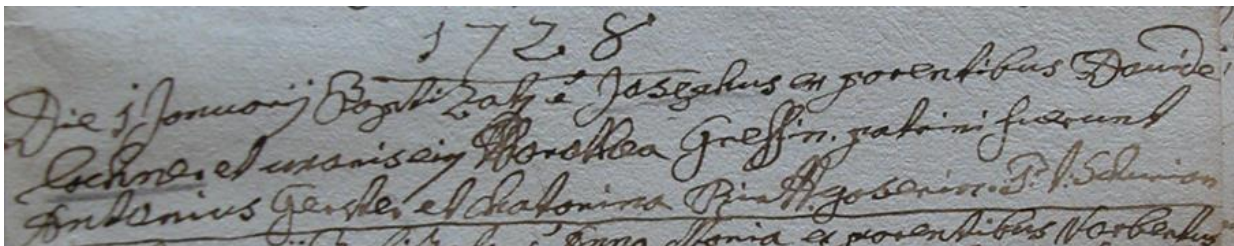 1728
Die 1 Januarij Baptizatq é Josephus ex parentibus Davide
Lochner et uxoris eiq Dorothea Gressin. patrini fuerunt
Antonius Gerster et Chatarina
Anna Maria ex parentibus Norbertus